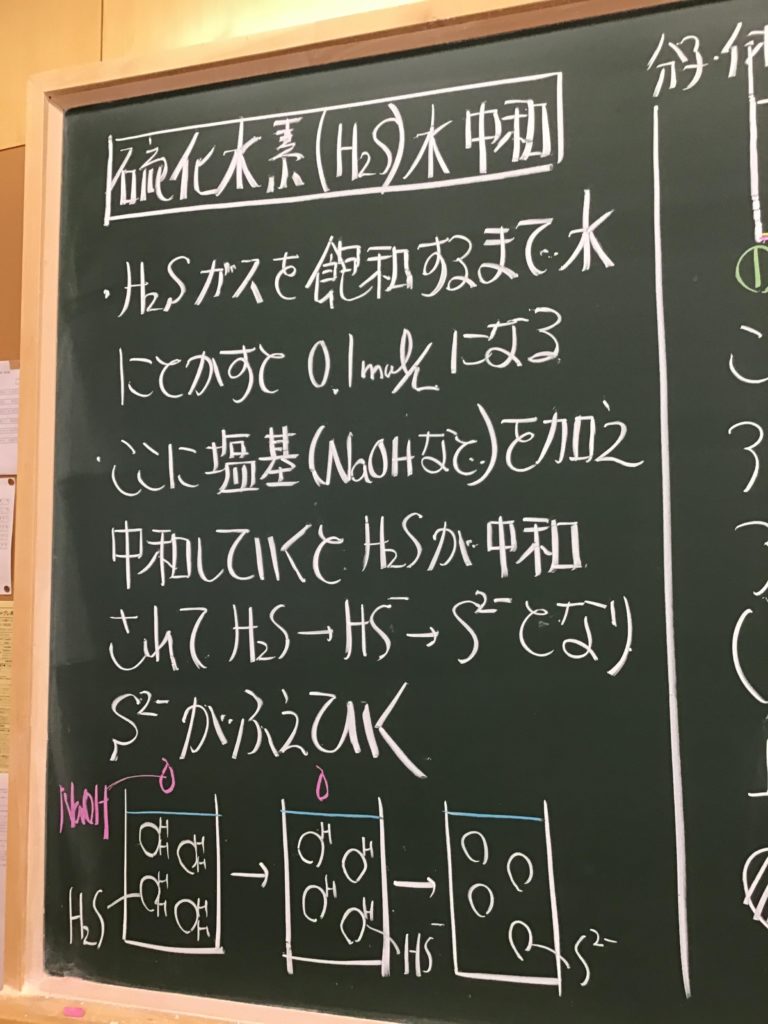 硫化水素(H₂S)水中和
・H₂Sガスを飽和するまで水
にとかすと 0.1mol/Lになる
・ここに塩基(NaOHなど)を加え
中和していくと H₂Sが中和
されて H₂S→HS⁻→S²⁻となり
S²⁻がふえていく
NaOH
H₂S
HS⁻
S²⁻
分子・
①